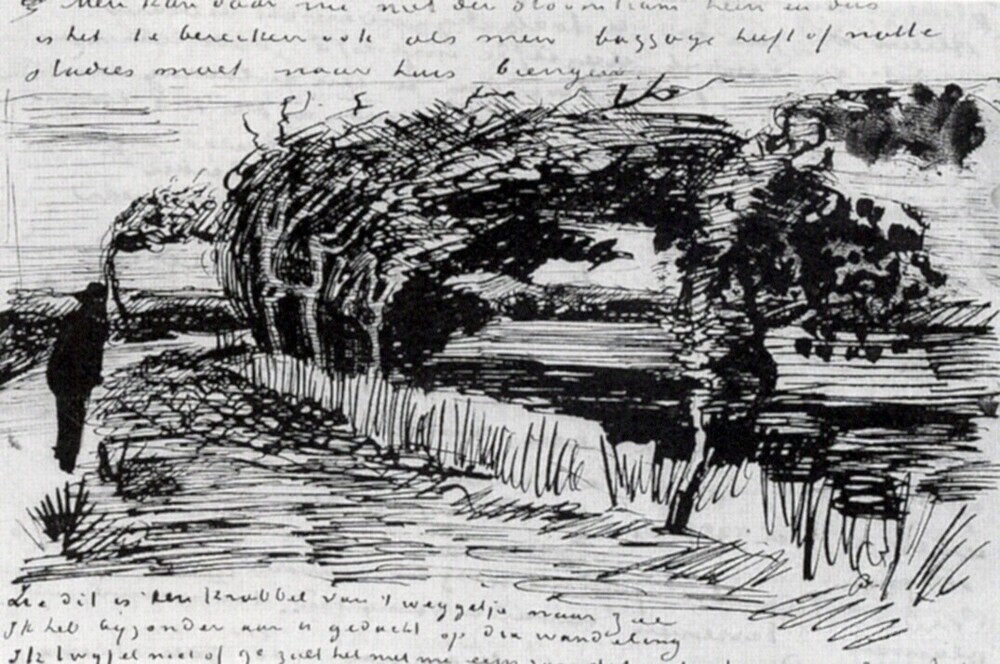 Men kan daar nu met den stoomtram heen en dus
is het te bereiken ook als men baggage heeft of natte
studies moet naar huis brengen.
Zie dit is een krabbel van 't weggetje naar zee
Ik heb byzonder aan U gedacht op die wandeling
Ik twyfel niet of ge zult het met me eens